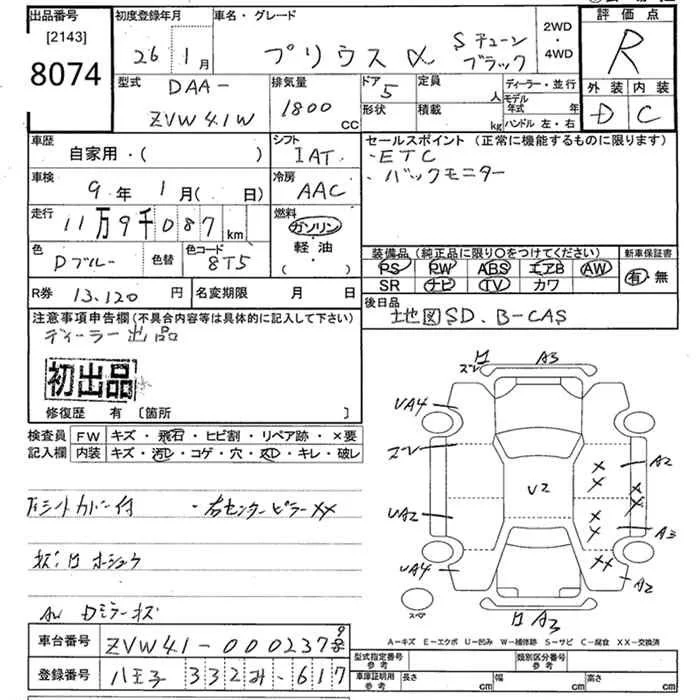 出品番号 初度登録年月 車名・グレード 評価点
[2143]
8074
26年 1月 プリウス α Sチューン ブラック 2WD・4WD R
型式 DAA- ZVW41W 排気量 1800 CC ドア 5 定員 人 ディーラー・並行 外装 内装
形状 積載 kg モデル年式 年 ハンドル 左・右 D C
車歴 自家用・( ) シフト IAT セールスポイント (正常に機能するものに限ります)
・ETC
・バックモニター
車検 9年 1月( 日) 冷房 AAC
走行 11万9千087 km 燃料 ガソリン 軽油 ( )
色 Dブルー 色替 色コード 8T5
装備品 (純正品に限り○をつけてください) 新車保証書
PS PW ABS エアB AW 有・無
SR ナビ TV カワ
R券 13,120円 名変期限 月 日
後日品 地図SD、B-CAS
注意事項申告欄 (不具合内容等は具体的に記入して下さい)
ディーラー出品
初出品
修復歴 有 [箇所 ]
検査員 FW キズ・飛石・ヒビ割・リペア跡・×要
記入欄 内装 キズ・汚レ・コゲ・穴・スレ・キレ・破レ
付 ・右センターピラーXX
AW Dミラーキズ
A3
UA4
A2
U2
UA2
A3
UA4
A2
スペア
A3
A-キズ E-エクボ U-凹み W-補修跡 S-サビ C-腐食 XX-交換済
車台番号 ZVW41-0002379号
型式指定番号 参考 類別区分番号 参考
登録番号 八王子 332 み -617
車庫証明用 参考 長さ cm 幅 cm 高さ cm